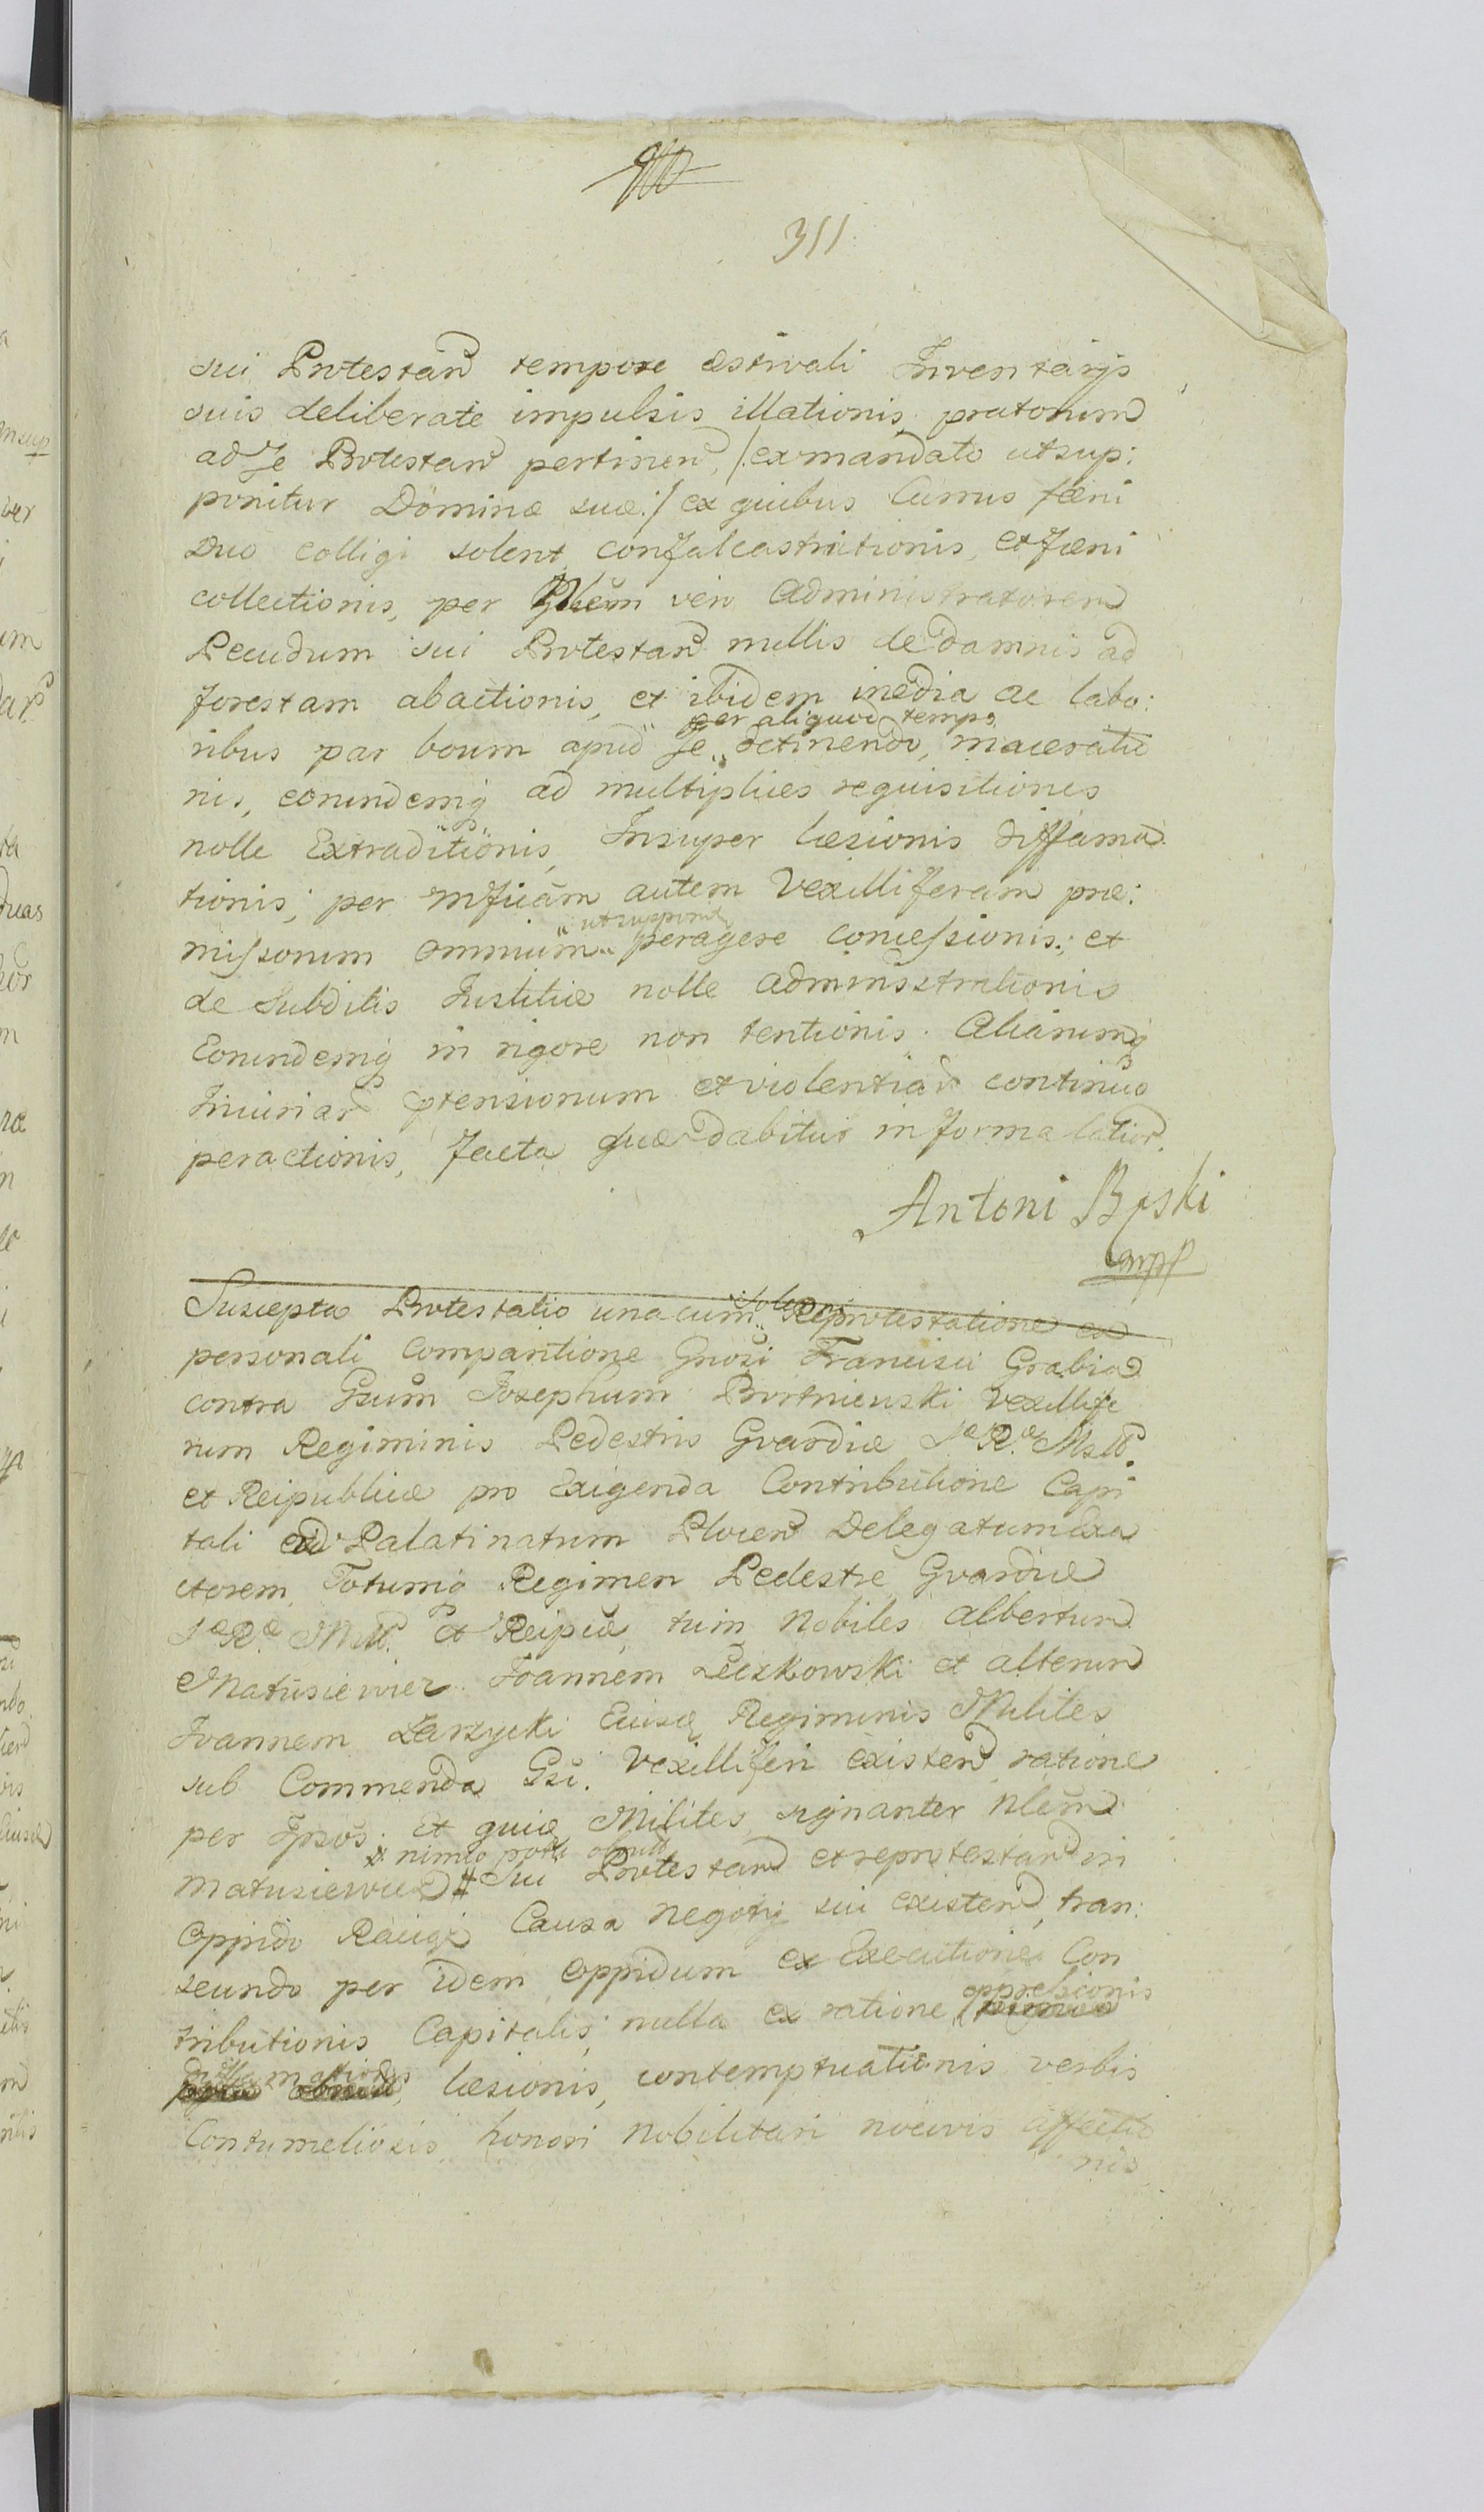 311
sui Protestan tempore æstivali Inventarijs
suis deliberate impulsis illationis, pratorum
ad se Protestan pertinen, /: ex mandato ut sup:
ponitur Dominæ suæ :/ ex quibus Currus fæni
Duo colligi solent confalcastrationis, et fæni
collectionis, per vero Administratorem
Pecudum sui Protestan nullis de damnis ad
forestam abactionis, et ibidem inedia ac labo:
per aliquod temps
ribus par boum apud se „ detinendo, maceratio
nis, eorundemq ad multiplices requisitiones
nolle Extraditionis, Insuper læsionis diffama
tionis; per Mficam autem Vexilliferam præ:
ut suppond
missorum omnium „ peragere concessionis; et
de Subditis Justitiæ nolle administrationis
Eorundemq in rigore non tentionis. Aliarumq
Injuriar ptensionum et violentiar continuo
peractionis, facta quæ dabitur in forma latior.
Antoni Bęski
mpp
Solenni
Suscepta Protestatio una cum „ Reprotestatione ex
personali Comparitione Gnosi Francisci Grabia
contra Gsum Josephum Bortniewski Vexillife
rum Regiminis Pedestris Gvardiæ Sæ Ræ Mttis
et Reipublicæ pro Exigenda Contributione Capi
tali ad Palatinatum Plocen Delegatum Exa
ctorem, Totumq Regimen Pedestre Gvardiæ
Sæ Ræ Mtt. et Reipcæ, tum Nobiles Albertum
Matusiewicz Joannem Leszkowski et alterum
Joannem Zarzycki Ejusd Regiminis Milites
sub Commenda Gsi. Vexilliferi existen ratione
per Ipsos. Et quia Milites, signanter Nlem
nimio potu obruti
Matusiewicz # Sui Protestan et reprotestan in
Oppido Raciąż Causa Negotij sui existen, tran:
seundo per idem Oppidum ex Executione Con
oppressionis
tributionis Capitalis, nulla ex ratione,
diffamationis
læsionis, contemptuationis verbis
Contumeliosis honori Nobilitari nocivis affectio
nis